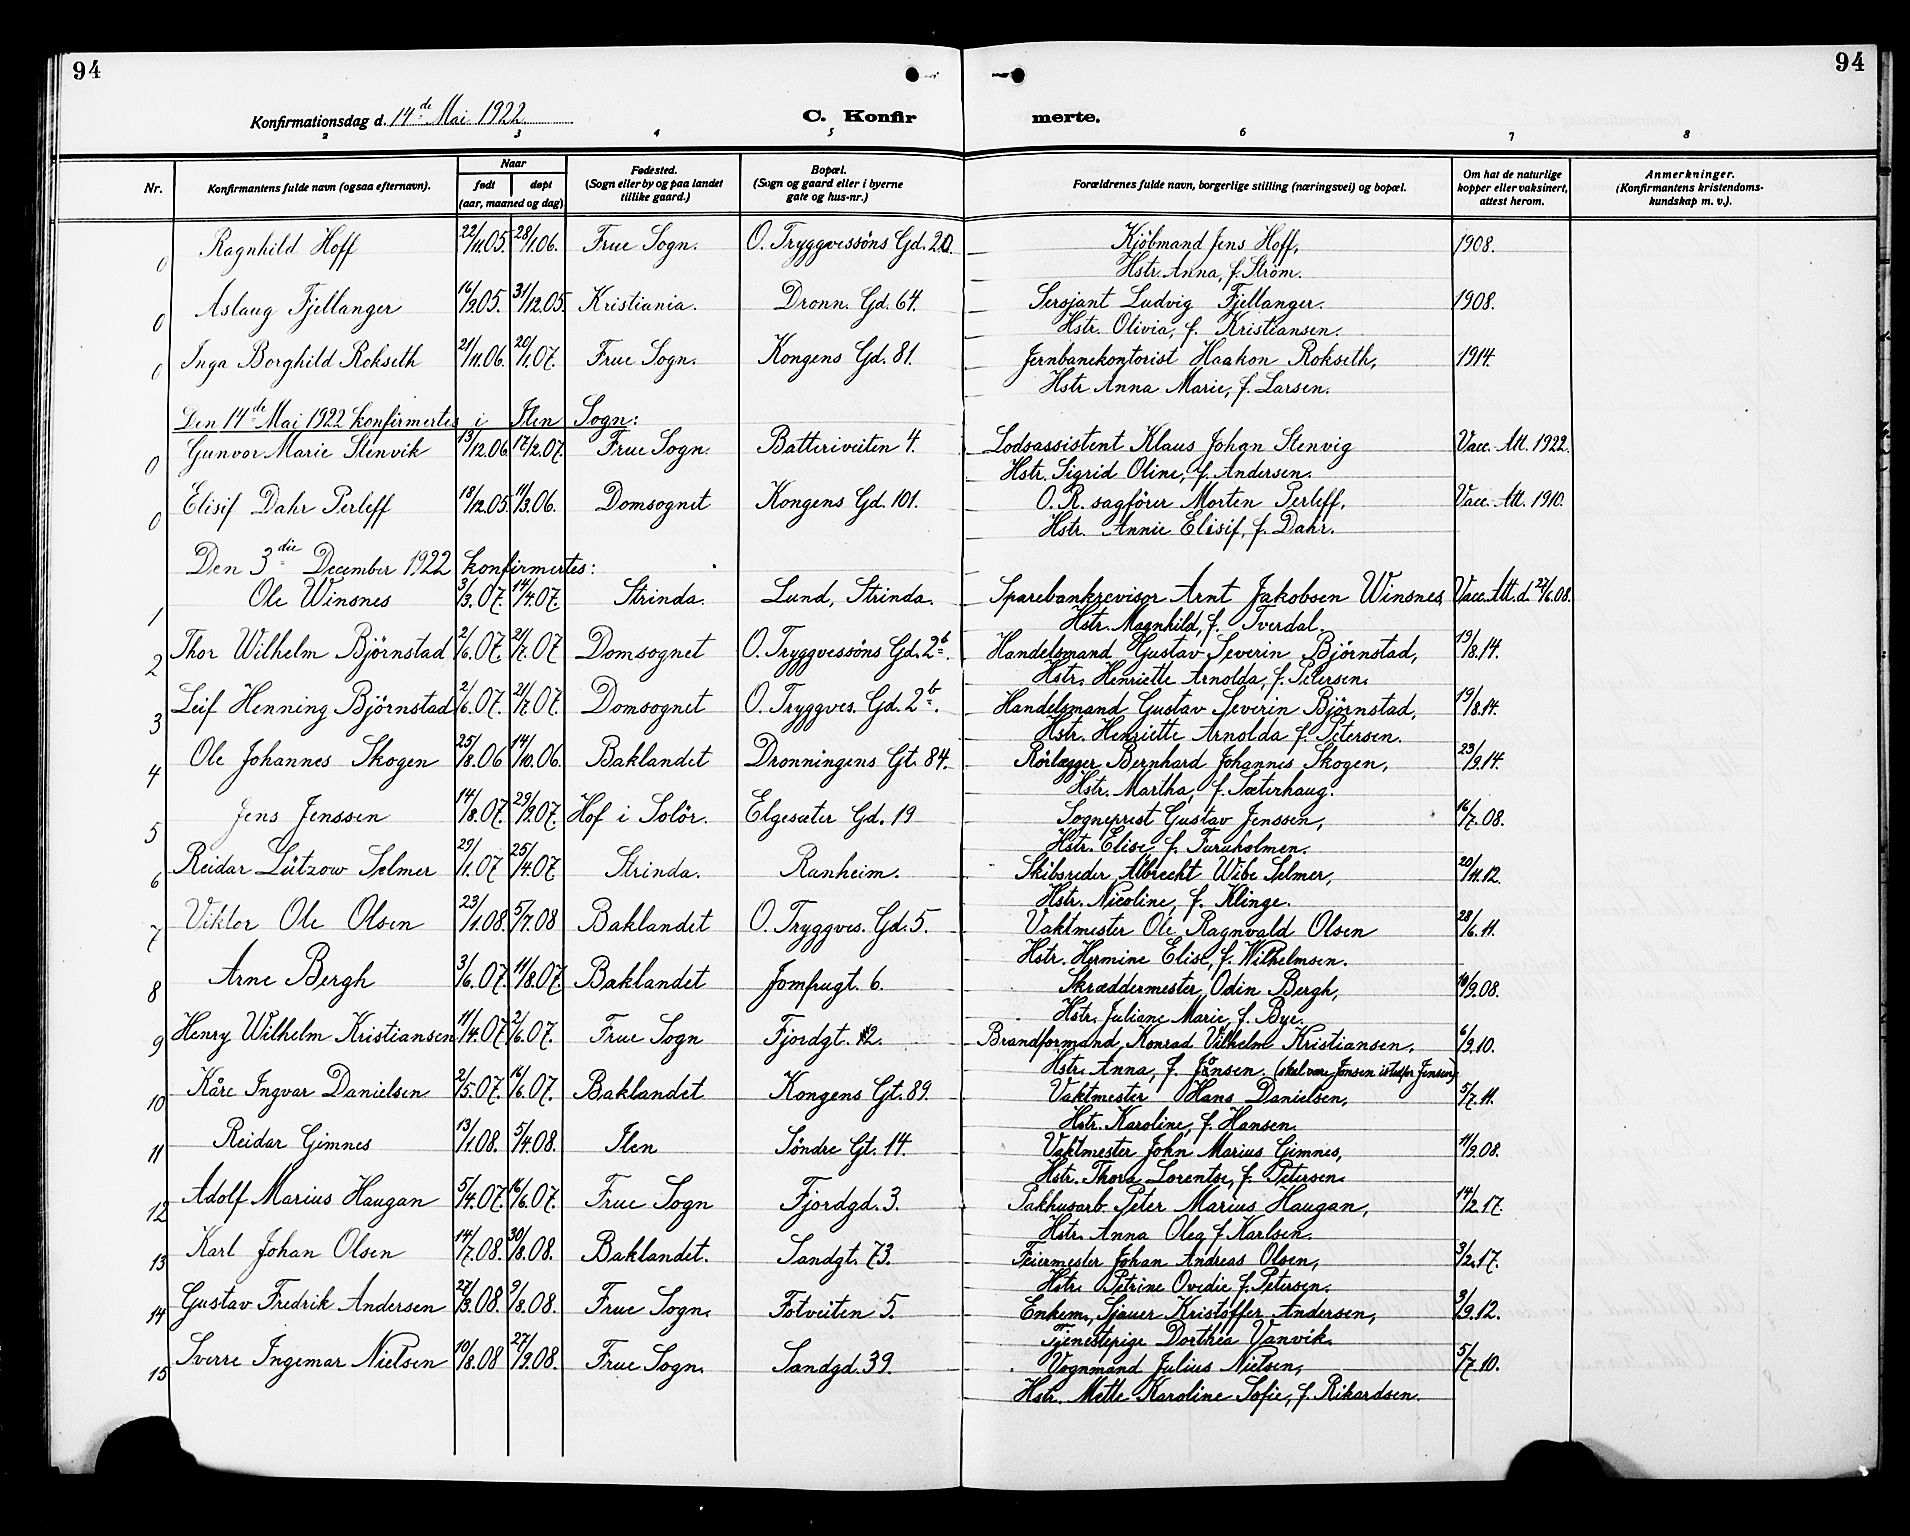 94
94
Konfirmationsdag d. 14de Mai 1922
C. Konfirmerte.
2 3 4 5 6 7 8
Nr. Konfirmantens fulde navn (ogsaa efternavn). Naar født døpt (aar, maaned og dag) Fødested. (Sogn eller by og paa landet tillike gaard.) Bopæl. (Sogn og gaard eller i byerne gate og hus-nr.) Forældrenes fulde navn, borgerlige stilling (næringsvei) og bopæl. Om hat de naturlige kopper eller vaksinert, attest herom. Anmerkninger. (Konfirmantens kristendoms-kundskap m. v.).
0 Ragnhild Hoff 22/11.05. 28/1.06. Frue Sogn. O. Tryggvessöns Gd. 20. Kjöbmand Jens Hoff, 1908.
Hstr. Anna, f. Ström.
0 Aslaug Fjellanger 16/9.05. 31/12.05. Kristiania. Dronn. Gd. 64. Sersjant Ludvig Fjellanger. 1908.
Hstr. Olivia, f. Kristiansen.
0 Inga Borghild Rokseth 21/11.06. 20/1.07. Frue Sogn. Kongens Gd. 81. Jernbanekontorist Haakon Rokseth, 1914.
Hstr. Anna Marie, f. Larsen.
Den 14de Mai 1922 konfirmertes i Ilen Sogn:
0 Gunvor Marie Stenvik 13/12.06. 17/2.07. Frue Sogn. Batteriveiten 4. Lodsassistent Klaus Johan Stenvig Vacc. Att. 1922.
Hstr. Sigrid Oline, f. Andersen.
0 Elisif Dahr Perleff 18/12.05. 11/3.06. Domsognet Kongens Gd. 101. O. R. sagförer Morten Perleff, Vacc. Att. 1910.
Hstr. Annie Elisif, f. Dahr.
Den 3die December 1922 konfirmertes:
1 Ole Winsnes 3/3.07. 14/4.07. Strinda. Lund, Strinda. Sparebankrevisor Arnt Jakobsen Winsnes, Vacc. Att. d. 27/6.08.
Hstr. Magnhild, f. Tverdal.
2 Thor Wilhelm Björnstad 2/6.07. 21/7.07 Domsognet O. Tryggvessöns Gd. 2b. Handelsmand Gustav Severin Björnstad, 19/8.14.
Hstr. Henriette Arnolda, f. Petersen.
3 Leif Henning Björnstad 2/6.07. 21/7.07. Domsognet O. Tryggves. Gd. 2b. Handelsmand Gustav Severin Björnstad, 19/8.14.
Hstr. Henriette Arnolda f. Petersen.
4 Ole Johannes Skogen 25/8.06 14/10.06. Baklandet Dronningens Gt. 84. Rörlægger Bernhard Johannes Skogen, 23/9.14.
Hstr. Martha, f. Sæterhaug.
5 Jens Jenssen 14/8.07. 29/9.07. Hof i Solör. Elgesæter Gd. 19 Sogneprest Gustav Jenssen, 16/7.08.
Hstr. Elise f. Furuholmen.
6 Reidar Lützow Selmer 29/1.07 25/4.07 Strinda. Ranheim. Skibsreder Albrecht Wibe Selmer, 20/11.12.
Hstr. Nicoline, f. Klinge.
7 Viktor Ole Olsen 23/1.08. 5/7.08 Baklandet O. Tryggves. Gd. 5. Vaktmester Ole Ragnvald Olsen 28/6.11.
Hstr. Hermine Elise, f. Wilhelmsen.
8 Arne Bergh 3/6.07. 11/8.07. Baklandet Jomfrugt. 6. Skræddermester Odin Bergh, 10/9.08.
Hstr. Juliane Marie, f. Bye.
9 Henry Wilhelm Kristiansen 11/4.07. 2/6.07. Frue Sogn Fjordgt. 12. Brandformand Konrad Vilhelm Kristiansen, 6/9.10.
Hstr. Anna, f. Jönsen. (skal være Jonsen istedfor Jensen)
10 Kåre Ingvar Danielsen 2/5.07. 16/6.07. Baklandet Kongens Gt. 89. Vaktmester Hans Danielsen, 5/7.11.
Hstr. Karoline, f. Hansen.
11 Reidar Gimnes 13/1.08. 5/4.08. Ilen Söndre Gt. 14. Vaktmester John Marius Gimnes, 11/9.08.
Hstr. Thora Lorentse, f. Petersen.
12 Adolf Marius Haugan 5/4.07. 16/6.07. Frue Sogn Fjordgd. 3. Pakhusarb. Peter Marius Haugan, 14/2.17.
Hstr. Anna Oleg f. Karlsen.
13 Karl Johan Olsen 14/7.08. 30/8.08. Baklandet. Sandgt. 73. Feiermester Johan Andreas Olsen, 3/2.17.
Hstr. Petrine Ovedie f. Petersen.
14 Gustav Fredrik Andersen 27/3.08. 9/8.08. Frue Sogn. Fotveiten 5. Enkem., Sjauer Kristoffer Andersen, 3/9.12.
Tjenestepige Dorthea Vanvik.
15 Sverre Ingemar Nielsen 10/8.08 27/9.08. Frue Sogn. Sandgd. 39. Vognmand Julius Nielsen, 5/7.10.
Hstr. Mette Karoline Sofie, f. Rikardsen.